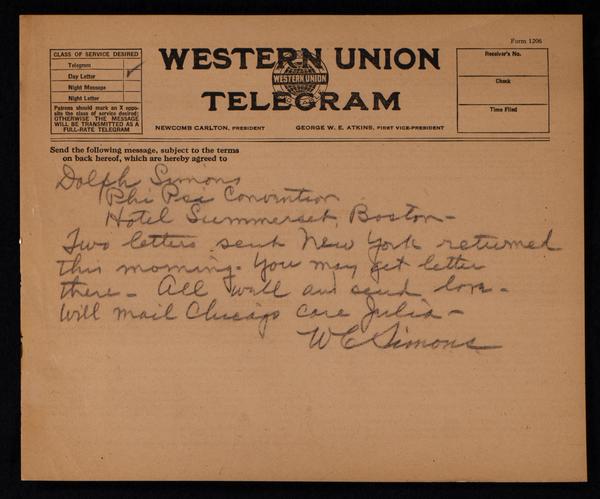 Form 1206
CLASS OF SERVICE DESIRED
Telegram
Day Letter ✓
Night Message
Night Letter
Patrons should mark an X oppo-
site the class of service desired;
OTHERWISE THE MESSAGE
WILL BE TRANSMITTED AS A
FULL-RATE TELEGRAM
WESTERN UNION
WESTERN UNION
TELEGRAM
NEWCOMB CARLTON, PRESIDENT
GEORGE W. E. ATKINS, FIRST VICE-PRESIDENT
Receiver's No.
Check
Time Filed
Send the following message, subject to the terms
on back hereof, which are hereby agreed to
Dolph Simons
Phi Psi Convention
Hotel Summerset, Boston-
Two letters sent New York returned
this morning. You may get letter
there- All well and send love-
Will mail Chicago care Julia-
W C Simons